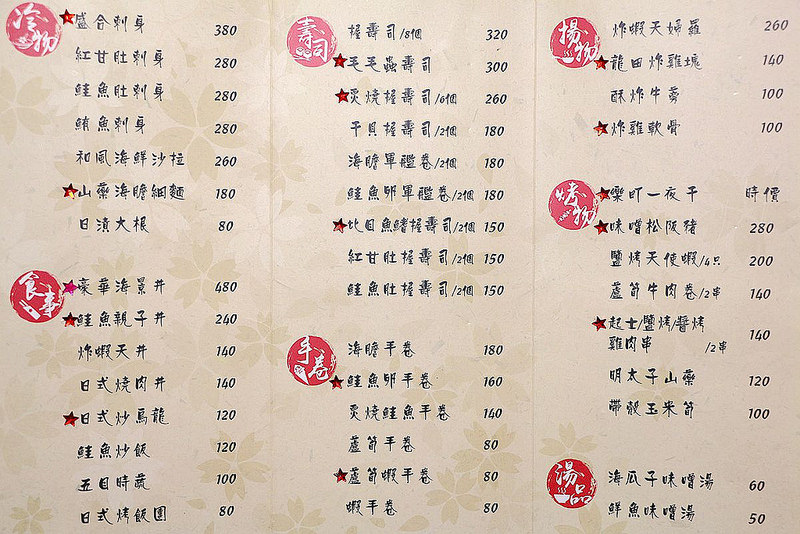 冷物
盛合刺身 380
紅甘肚刺身 280
鮭魚肚刺身 280
鮪魚刺身 280
和風海鮮沙拉 260
山藥海膽細麵 180
日漬大根 80
食事
豪華海景丼 480
鮭魚親子丼 240
炸蝦天丼 140
日式燒肉丼 140
日式炒烏龍 120
鮭魚炒飯 120
五目時蔬 100
日式烤飯團 80
壽司
握壽司/8個 320
毛毛蟲壽司 300
炙燒握壽司/6個 260
干貝握壽司/2個 180
海膽軍艦卷/2個 180
鮭魚卵軍艦卷/2個 180
比目魚鰭握壽司/2個 150
紅甘肚握壽司/2個 150
鮭魚肚握壽司/2個 150
手卷
海膽手卷 180
鮭魚卵手卷 160
炙燒鮭魚手卷 140
蘆筍手卷 80
蘆筍蝦手卷 80
蝦手卷 80
揚物
炸蝦天婦羅 260
龍田炸雞塊 140
酥炸牛蒡 100
炸雞軟骨 100
烤物
一夜干 時價
味噌松阪豬 280
鹽烤天使蝦/4只 200
蘆筍牛肉卷/2串 140
起士/鹽烤/醬烤
雞肉串 /2串 140
明太子山藥 120
帶殼玉米筍 100
湯品
海瓜子味噌湯 60
鮮魚味噌湯 50